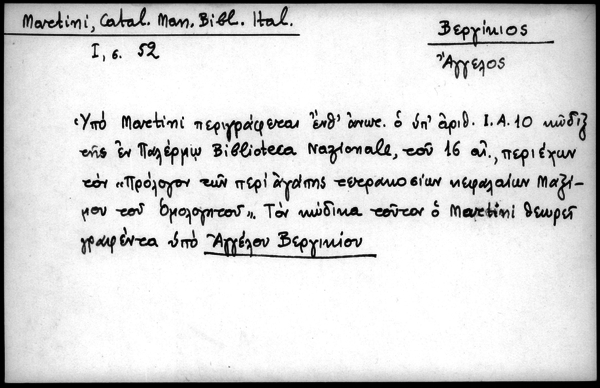 Martini, Catal. Man. Bibl. Ital.
I, σ. 52
Βεργίκιος
Ἄγγελος
Ὑπὸ Martini περιγράφεται ἔνθ' ἀνωτ. ὁ ὑπ' ἀριθ. I.A.10 κῶδιξ
τῆς ἐν Παλέρμῳ Biblioteca Nazionale, τοῦ 16 αἰ., περιέχων
τὸν «Πρόλογον τῶν περὶ ἀγάπης τετρακοσίων κεφαλαίων Μαξί-
μου τοῦ Ὁμολογητοῦ». Τὸν κώδικα τοῦτον ὁ Martini θεωρεῖ
γραφέντα ὑπὸ Ἀγγέλου Βεργικίου